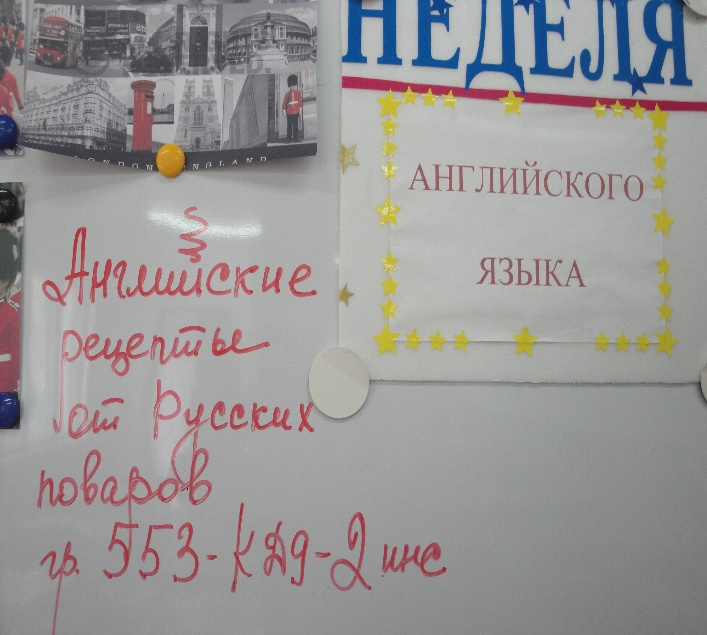 LONDON ENGLAND
НЕДЕЛЯ
АНГЛИЙСКОГО
ЯЗЫКА
Английские
рецепты
от Русских
поваров
гр. 553-КД9-2инс